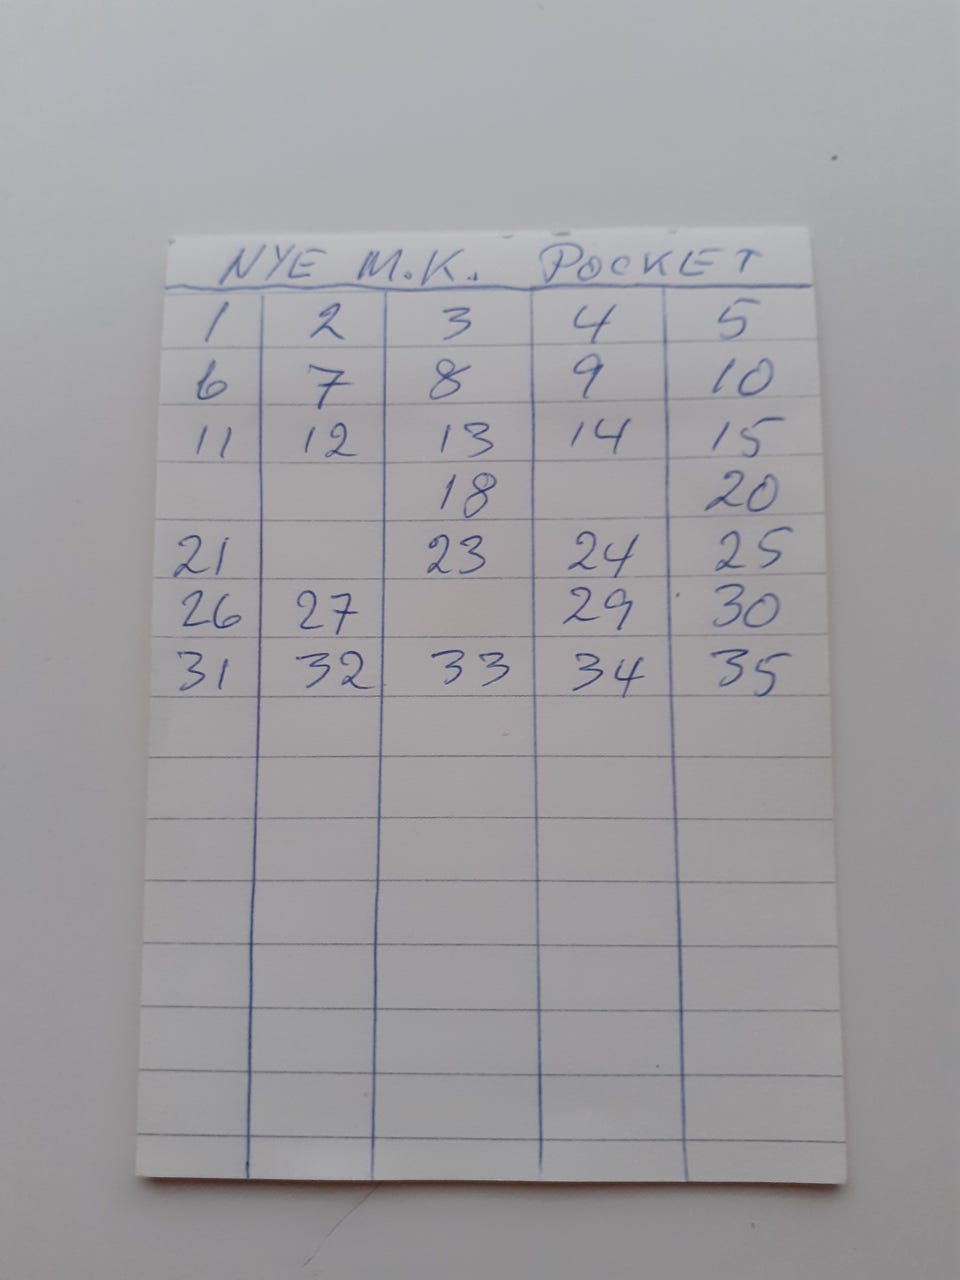 NYE M.K. POCKET
1 2 3 4 5
6 7 8 9 10
11 12 13 14 15
18 20
21 23 24 25
26 27 29 30
31 32 33 34 35